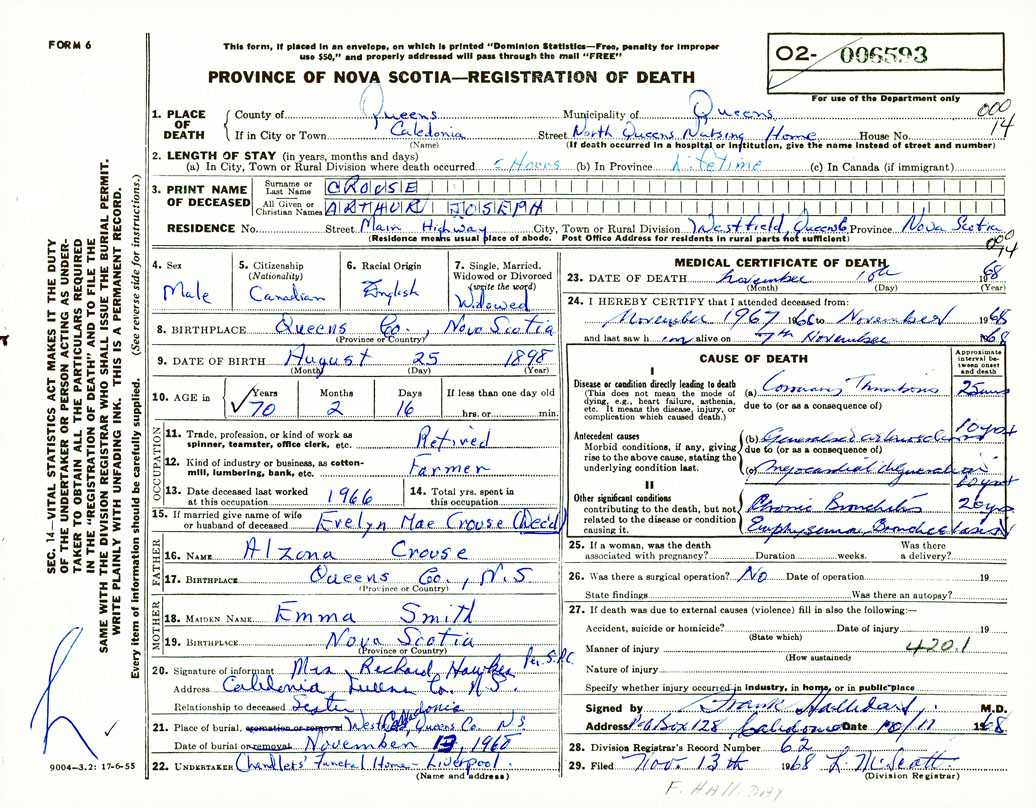 FORM 6
This form, if placed in an envelope, on which is printed "Dominion Statistics—Free, penalty for improper
use $50," and properly addressed will pass through the mail "FREE"
PROVINCE OF NOVA SCOTIA—REGISTRATION OF DEATH
02- 006593
For use of the Department only
000
14
1. PLACE OF DEATH
County of Queens Municipality of Queens
If in City or Town Caledonia Street North Queens Nursing Home House No.
(Name) (If death occurred in a hospital or institution, give the name instead of street and number)
2. LENGTH OF STAY (in years, months and days)
(a) In City, Town or Rural Division where death occurred Hours (b) In Province Lifetime (c) In Canada (if immigrant)
3. PRINT NAME OF DECEASED
Surname or Last Name CROUSE
All Given or Christian Names ARTHUR JOSEPH
RESIDENCE No. Street Main Highway City, Town or Rural Division Westfield, Queens Province Nova Scotia
(Residence means usual place of abode. Post Office Address for residents in rural parts not sufficient)
000
14
4. Sex
Male
5. Citizenship
(Nationality)
Canadian
6. Racial Origin
English
7. Single, Married,
Widowed or Divorced
(write the word)
Widowed
8. BIRTHPLACE Queens Co., Nova Scotia
(Province or Country)
9. DATE OF BIRTH August 25 1898
(Month) (Day) (Year)
10. AGE in
Years Months Days If less than one day old
70 2 16 hrs. or min.
OCCUPATION
11. Trade, profession, or kind of work as
spinner, teamster, office clerk, etc. Retired
12. Kind of industry or business, as cotton-
mill, lumbering, bank, etc. Farmer
13. Date deceased last worked
at this occupation 1966
14. Total yrs. spent in
this occupation
15. If married give name of wife
or husband of deceased Evelyn Mae Crouse (Dec'd)
FATHER
16. NAME Alzona Crouse
17. BIRTHPLACE Queens Co., N.S
(Province or Country)
MOTHER
18. MAIDEN NAME Emma Smith
19. BIRTHPLACE Nova Scotia
(Province or Country)
20. Signature of informant Mrs. Richard
Address Caledonia, Queens Co. N.S.
Relationship to deceased Sister
21. Place of burial, cremation or removal West Caledonia, Queens Co NS
Date of burial or removal November 13, 1968
22. UNDERTAKER Chandlers' Funeral Home - Liverpool.
(Name and address)
MEDICAL CERTIFICATE OF DEATH
23. DATE OF DEATH November 10th 1968
(Month) (Day) (Year)
24. I HEREBY CERTIFY that I attended deceased from:
November 1967 to November 1968
and last saw him alive on 7th November 1968
CAUSE OF DEATH
Approximate
interval be-
tween onset
and death
I
Disease or condition directly leading to death
(This does not mean the mode of
dying, e.g., heart failure, asthenia,
etc. It means the disease, injury, or
complication which caused death.)
(a) Coronary Thrombosis
due to (or as a consequence of)
Antecedent causes
Morbid conditions, if any, giving
rise to the above cause, stating the
underlying condition last.
(b) Generalised 10 yrs
due to (or as a consequence of)
(c) Myocardial degeneration
II
Other significant conditions
contributing to the death, but not
related to the disease or condition
causing it.
Chronic Bronchitis
Emphysema Bronchiectasis
25. If a woman, was the death
associated with pregnancy? Duration weeks. Was there
a delivery?
26. Was there a surgical operation? No Date of operation 19
State findings Was there an autopsy?
27. If death was due to external causes (violence) fill in also the following:—
Accident, suicide or homicide? Date of injury 19
(State which)
Manner of injury 420.1
(How sustained)
Nature of injury
Specify whether injury occurred in industry, in home, or in public place
Signed by Frank Halliday M.D.
Address Box 128, Caledonia Date 10/11 1968
28. Division Registrar's Record Number 62
29. Filed Nov. 13th 1968
(Division Registrar)
F. HALLIDAY
SEC. 14—VITAL STATISTICS ACT MAKES IT THE DUTY
OF THE UNDERTAKER OR PERSON ACTING AS UNDER-
TAKER TO OBTAIN ALL THE PARTICULARS REQUIRED
IN THE "REGISTRATION OF DEATH" AND TO FILE THE
SAME WITH THE DIVISION REGISTRAR WHO SHALL ISSUE THE BURIAL PERMIT.
WRITE PLAINLY WITH UNFADING INK. THIS IS A PERMANENT RECORD.
Every item of information should be carefully supplied. (See reverse side for instructions.)
9004—3.2: 17-6-55